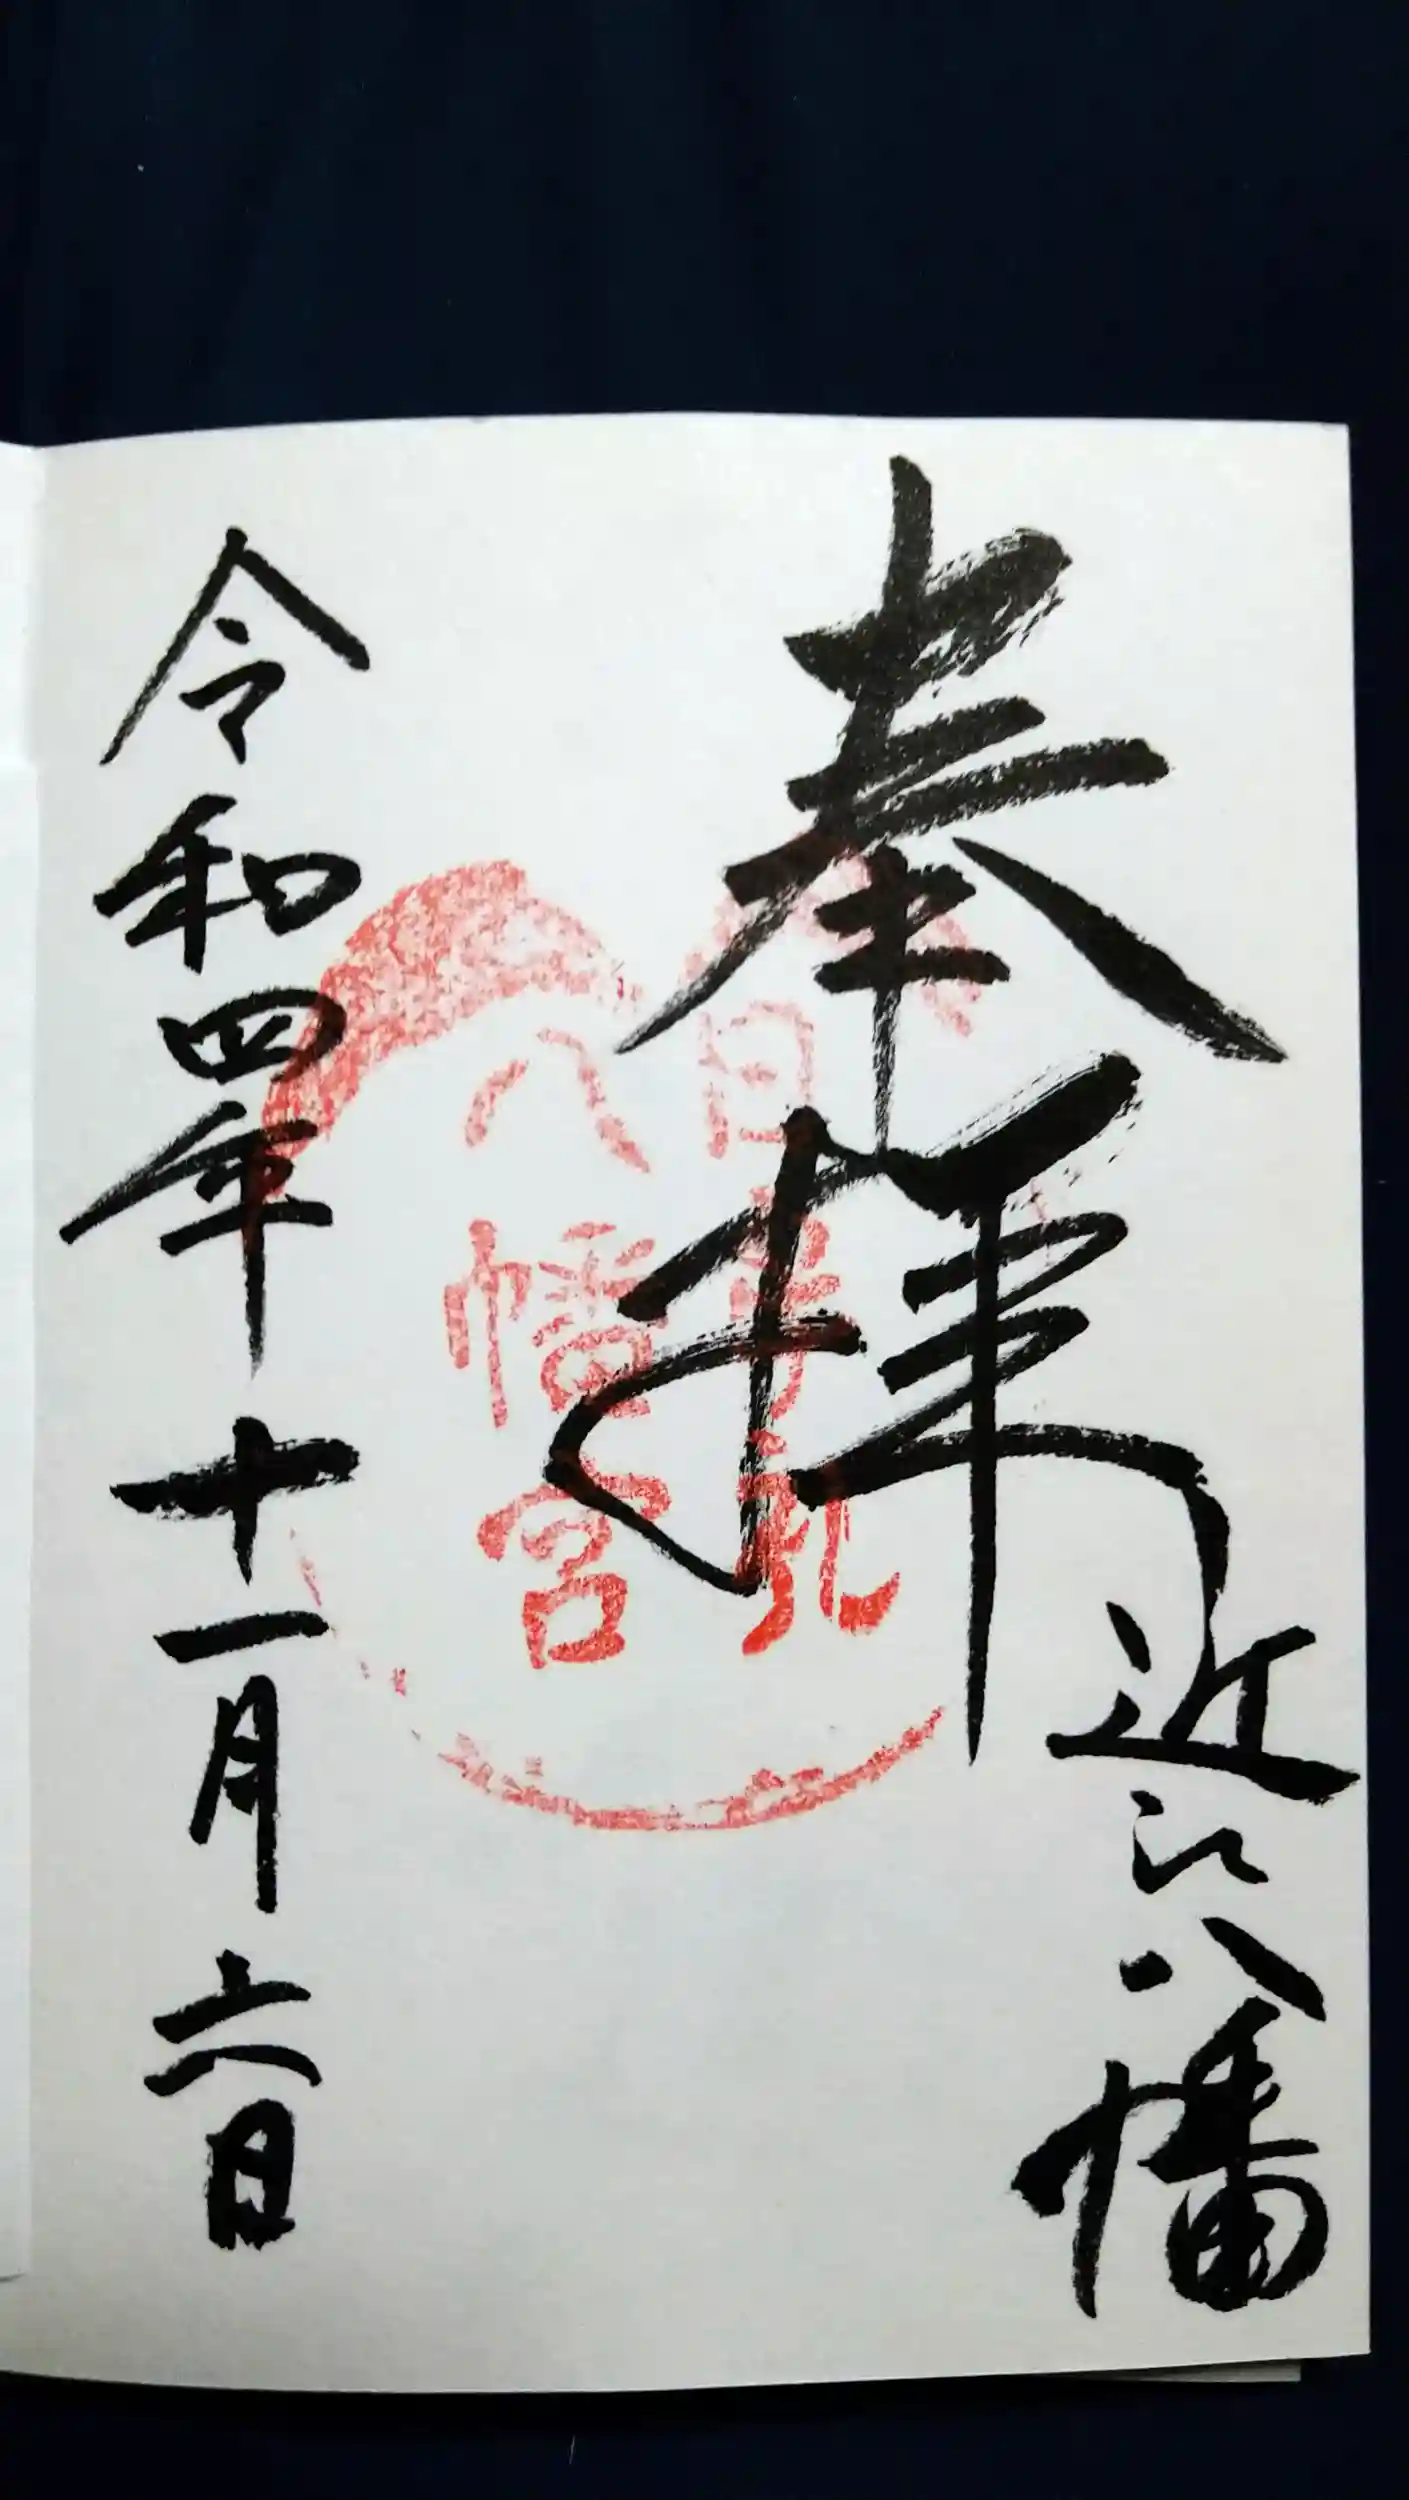 奉拝
近江八幡
日牟礼
八幡宮
令和四年十一月六日